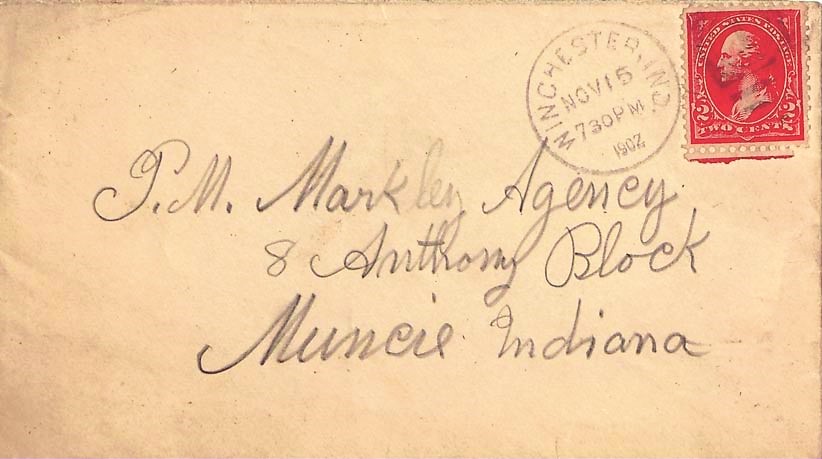 UNITED STATES POSTAGE
2 2
TWO CENTS
WINCHESTER, IND.
NOV 15
730PM
1902
P.M. Markley Agency
8 Anthony Block
Muncie Indiana